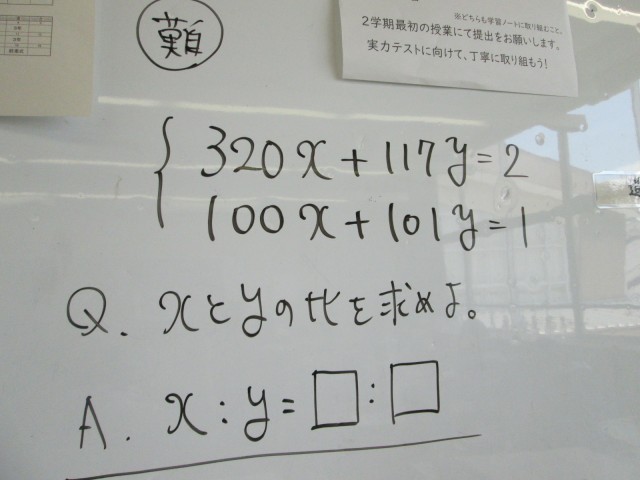 難
※どちらも学習ノートに取り組むこと。
2学期最初の授業にて提出をお願いします。
実力テストに向けて、丁寧に取り組もう!
320x+117y=2
100x+101y=1
Q. xとyの比を求めよ。
A. x:y=□:□